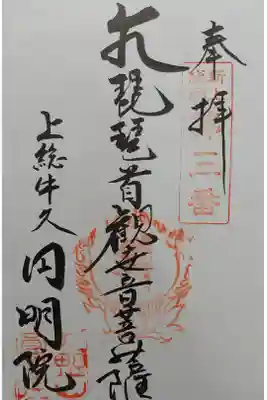 奉拝
三番
琵琶首観世音菩薩
上総牛久
円明院